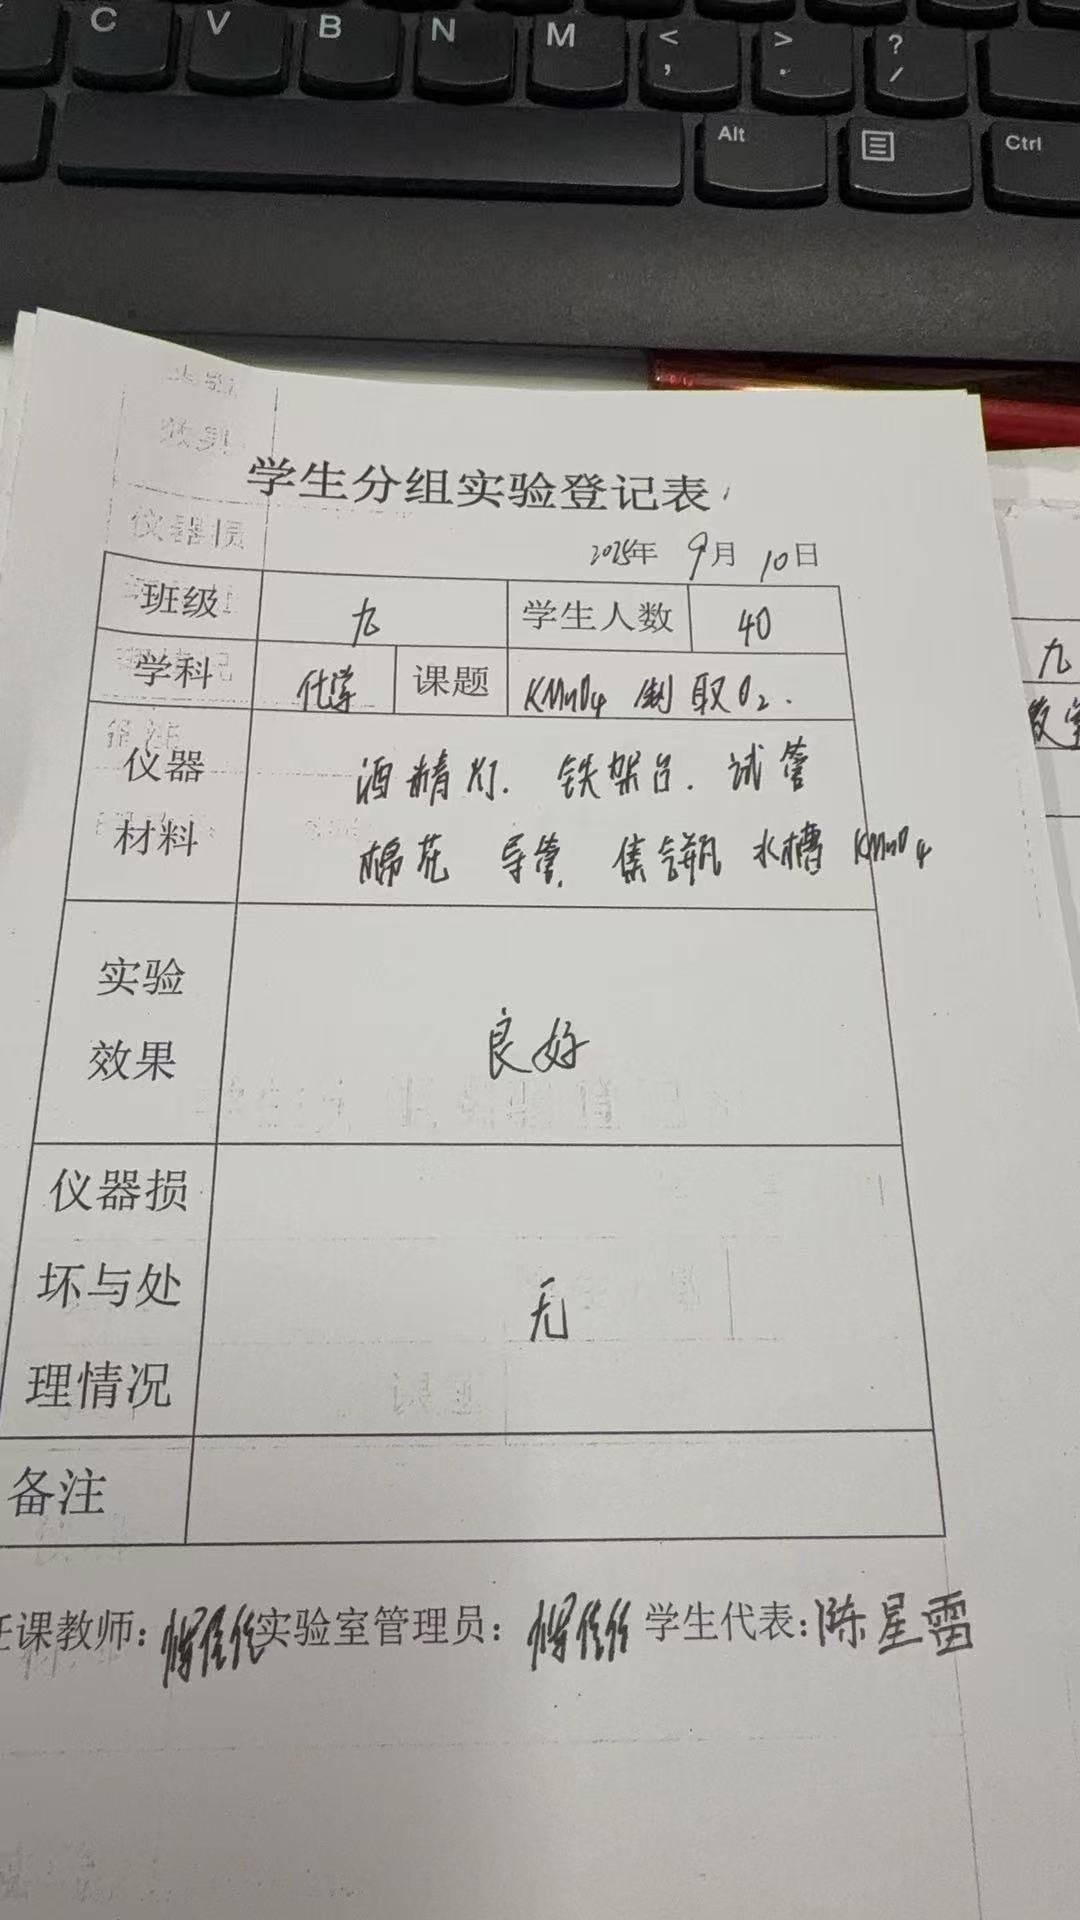 C V B N M < , > . ? /
Alt Ctrl
学生分组实验登记表
2025年 9月 10日
班级 九 学生人数 40
学科 化学 课题 KMnO4 制取O2.
仪器 酒精灯. 铁架台. 试管
材料 棉花 导管. 集气瓶 水槽 KMnO4
实验
效果
良好
仪器损
坏与处
理情况
无
备注
任课教师: 实验室管理员: 学生代表: 陈星雷
九